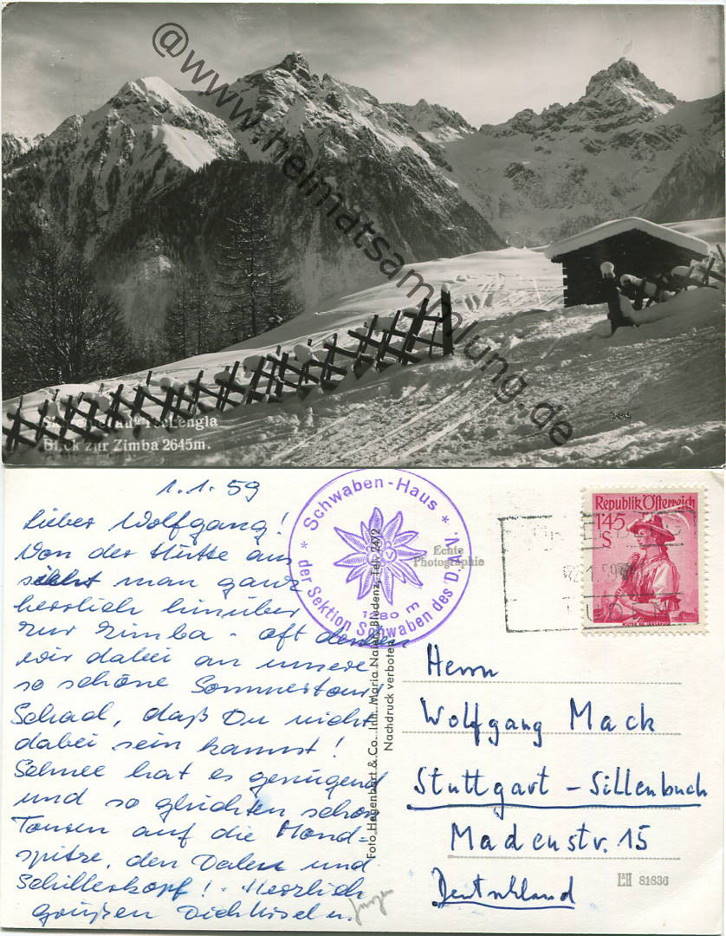 @www.heimatsammlung.de
Skiweg auf Tschengla
Blick zur Zimba 2645m.
1.1.59
Lieber Wolfgang!
Von der Hütte aus
sieht man ganz
herrlich hinüber
zur Zimba - oft denken
wir dabei an unsere
so schöne Sommertour
Schad, daß Du nicht
dabei sein kannst!
Schnee hat es genügend
und so glückten schon
Touren auf die Mond=
spitze, den Valen und
Schillerkopf! Herzlich
grüßen Dich Lisel u.
Jürgen
* Schwaben-Haus *
der Sektion Schwaben des D.A.V.
Echte
Photographie
Nachdruck verboten
Republik Österreich
1'45
S
Herrn
Wolfgang Mack
Stuttgart - Sillenbuch
Madenstr. 15
Deutschland
81836